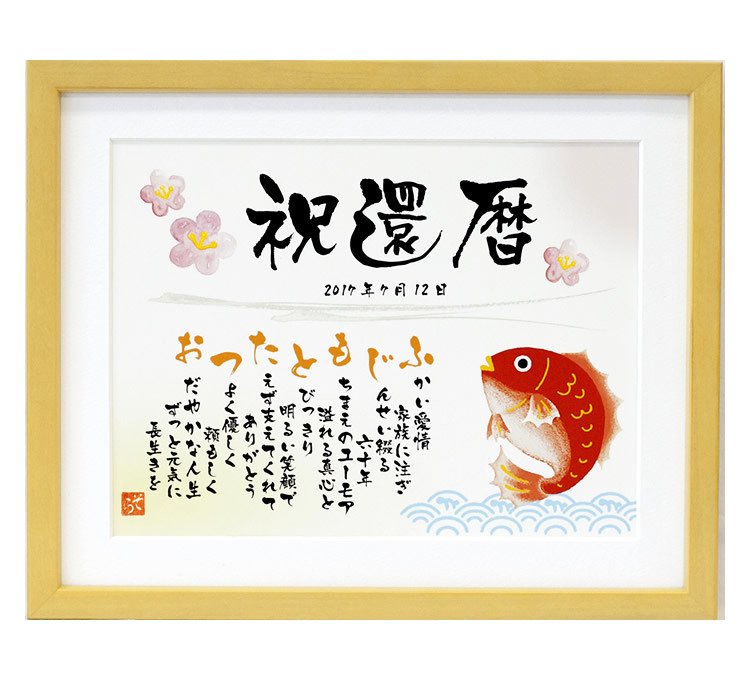 祝還暦
2017年7月12日
ふじもとたつお
かい愛情
家族に注ぎ
んせい綴る
六十年
ちまえのユーモア
溢れる真心と
びっきり
明るい笑顔で
えず支えてくれて
ありがとう
よく優しく
頼もしく
だやかな人生
ずっと元気に
長生きを
そら